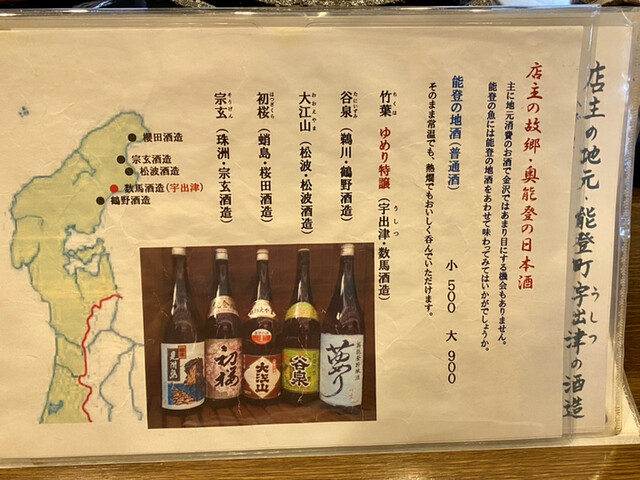 店主の地元・能登町宇出津の酒造
うしつ
店主の故郷・奥能登の日本酒
主に地元消費のお酒で金沢ではあまり目にする機会もありません。
能登の魚には能登の地酒をあわせて味わってみてはいかがでしょうか。
能登の地酒(普通酒) 小 500 大 900
そのまま常温でも、熱燗でもおいしく呑んでいただけます。
竹葉 ゆめり特醸(宇出津・数馬酒造)
ちくは
うしつ
谷泉(鵜川・鶴野酒造)
たにいずみ
大江山(松波・松波酒造)
おおえやま
初桜(蛸島・桜田酒造)
はつざくら
宗玄(珠洲・宗玄酒造)
そうげん
櫻田酒造
宗玄酒造
松波酒造
数馬酒造(宇出津)
鶴野酒造
初桜
大江山
谷泉
夢り